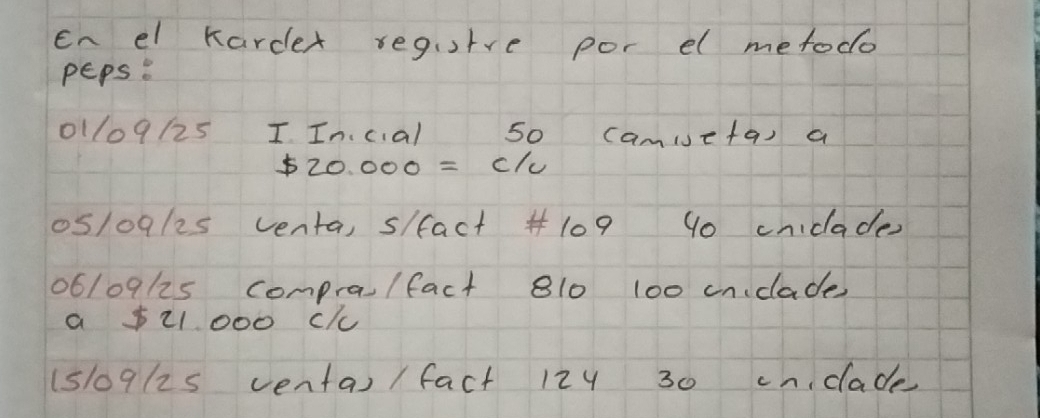 En el Kardex registre por el metodo
PEPS:
01/09/25 I. Inicial 50 camisetas a
$20.000 = c/u
05/09/25 ventas, s/fact #109 40 unidades
06/09/25 compras/fact 810 100 unidades
a $21.000 c/u
15/09/25 ventas/fact 124 30 unidades